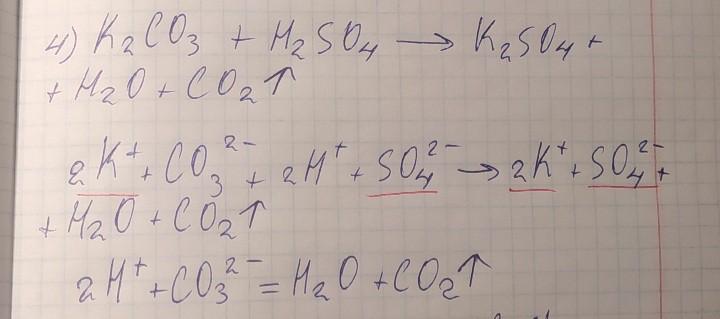 4) K₂CO₃ + H₂SO₄ → K₂SO₄ +
+ H₂O + CO₂↑
2K⁺ + CO₃²⁻ + 2H⁺ + SO₄²⁻ → 2K⁺ + SO₄²⁻ +
+ H₂O + CO₂↑
2H⁺ + CO₃²⁻ = H₂O + CO₂↑